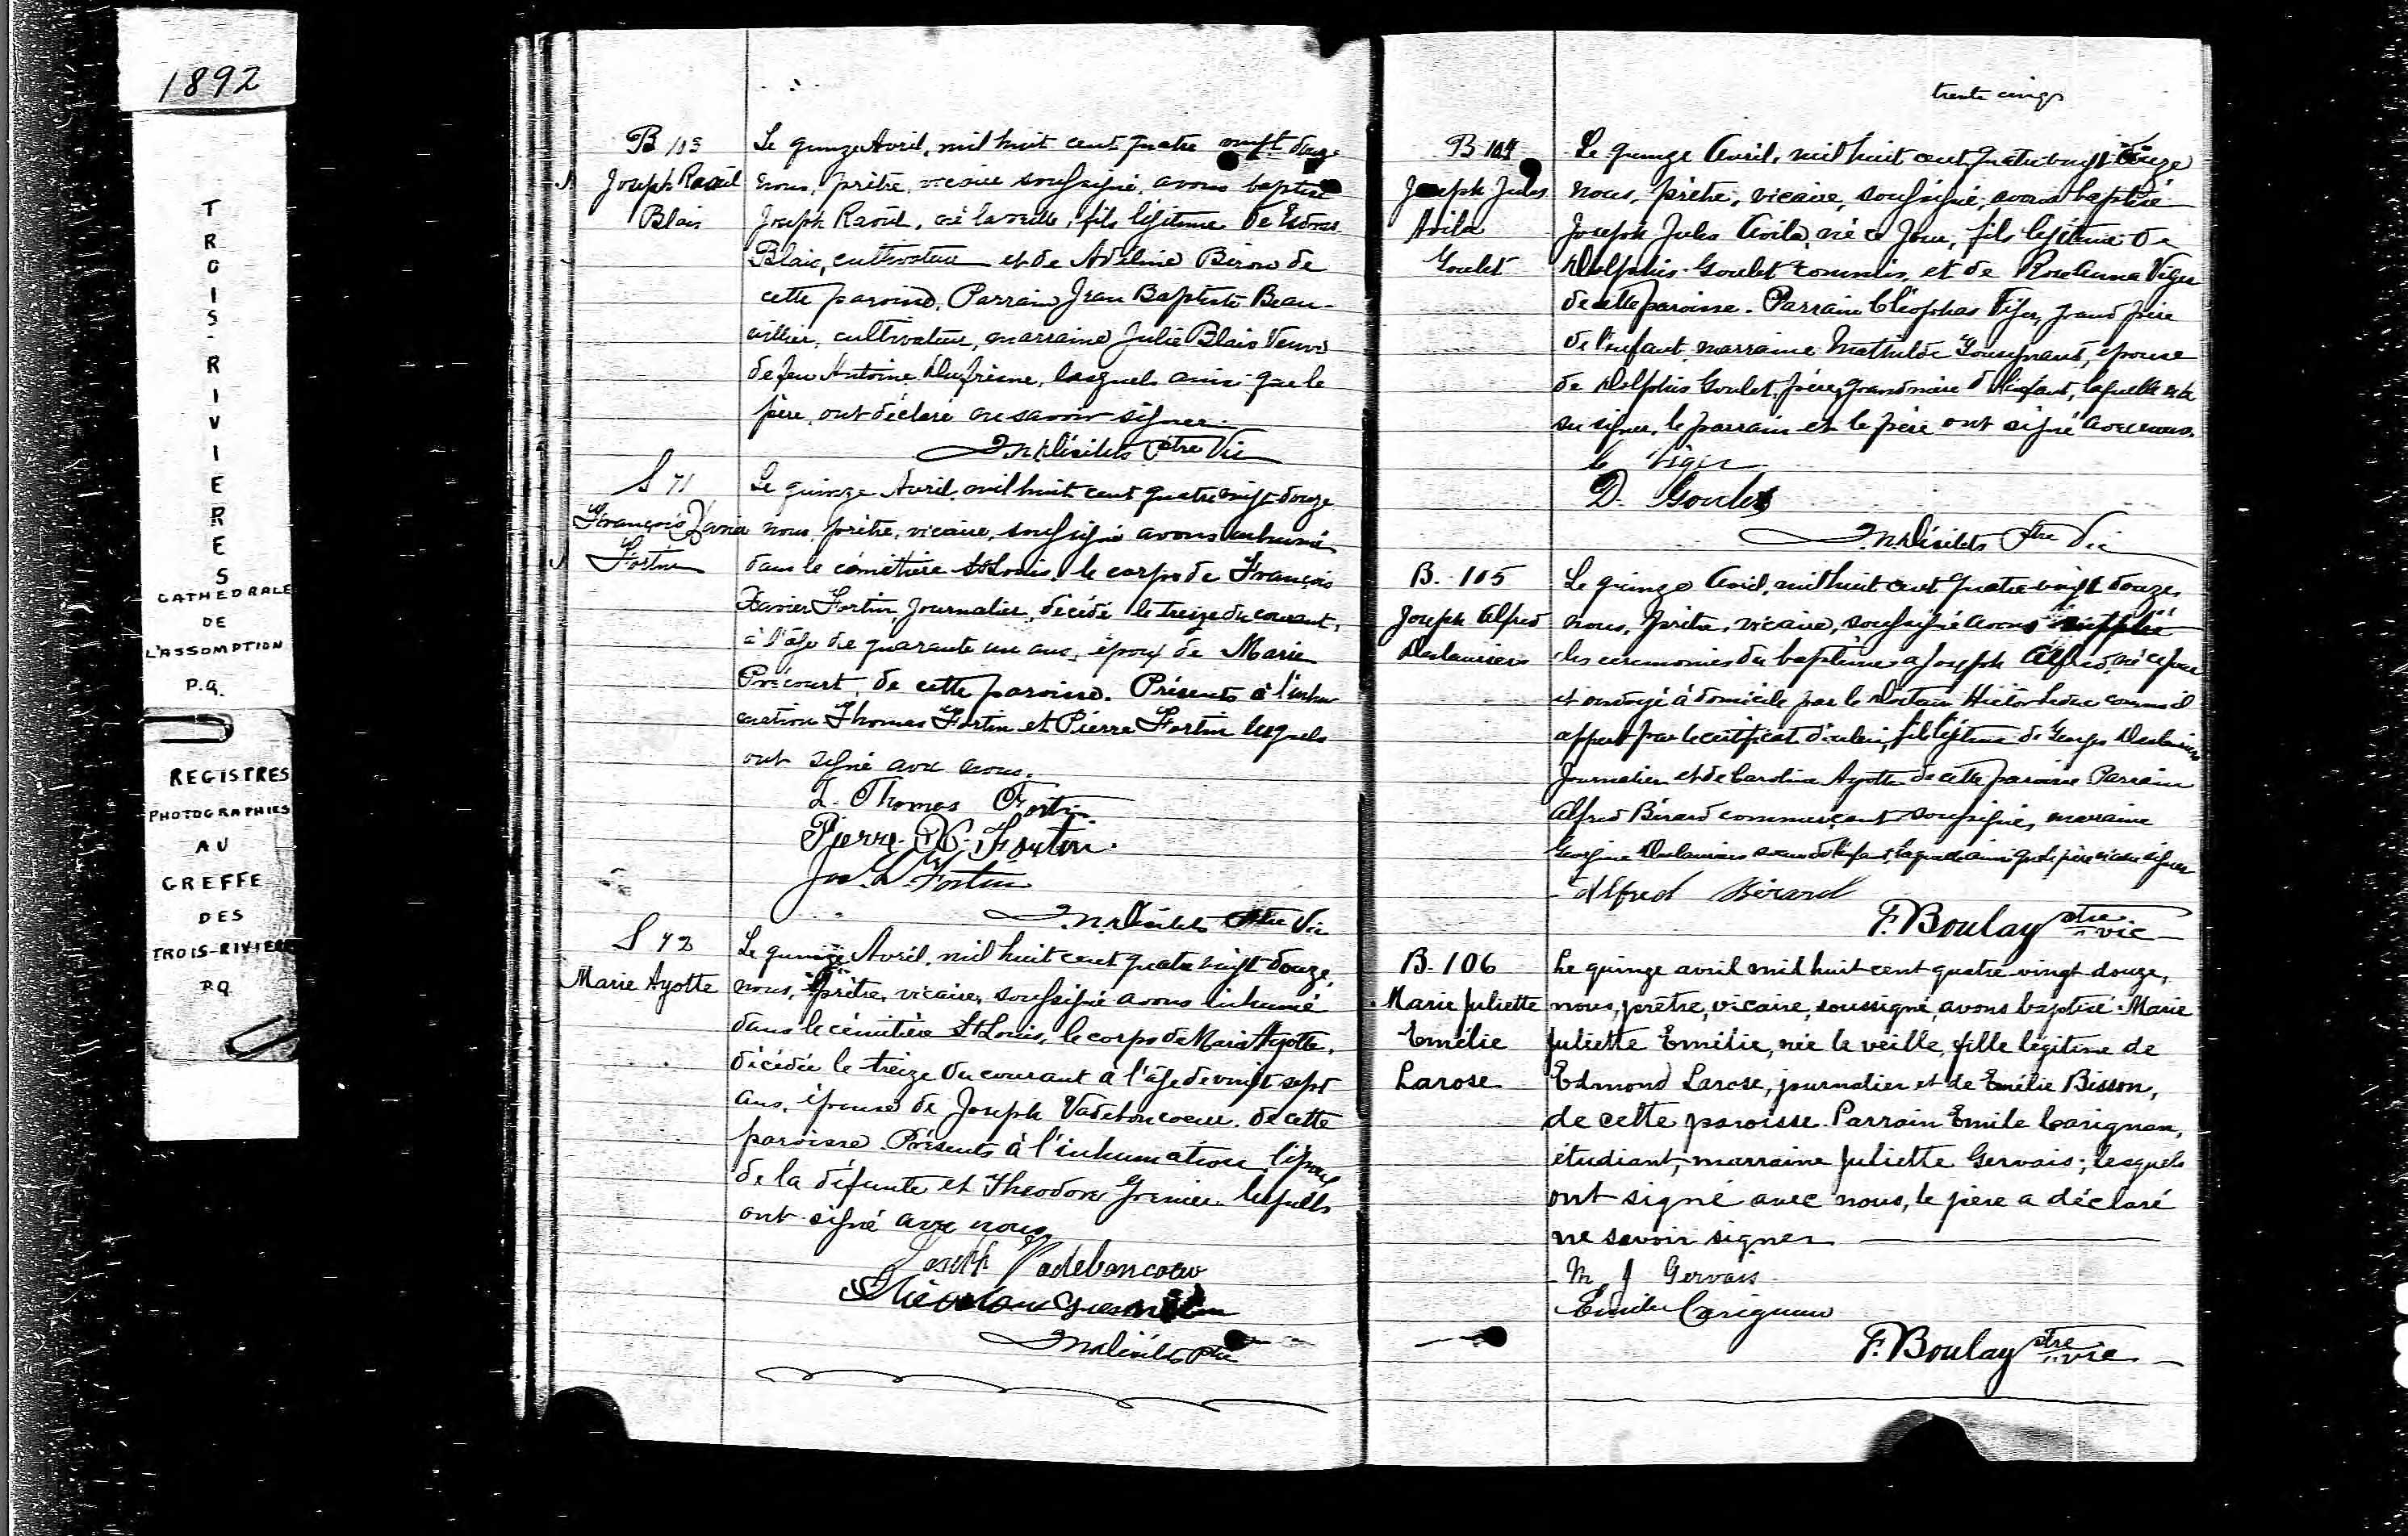 1892
TROIS-RIVIERES
CATHEDRALE
DE
L'ASSOMPTION
P.Q.
REGISTRES
PHOTOGRAPHIES
AU
GREFFE
DES
TROIS-RIVIERE
P.Q.
B 103
Joseph Raoul
Blais
Le quinze Avril, mil huit cent quatre vingt douze
nous, prêtre, vicaire soussigné, avons baptisé
Joseph Raoul, né la veille, fils légitime de Esdras
Blais, cultivateur et de Adeline Biron de
cette paroisse. Parrain Jean Baptiste Beau-
villier, cultivateur, marraine Julie Blais Veuve
de feu Antoine Dufresne, lesquels ainsi que le
père, ont déclaré ne savoir signer.
Désilets Ptre Vic
S 71
François Xavier
Fortin
Le quinze Avril, mil huit cent quatre vingt douze
nous, prêtre, vicaire, soussigné avons inhumé
dans le cimetière St Louis, le corps de François
Xavier Fortin, Journalier, décédé le treize du courant,
à l'âge de quarante un ans, époux de Marie
Précourt, de cette paroisse. Présents à l'inhu
mation Thomas Fortin et Pierre Fortin lesquels
ont signé avec nous.
L. Thomas Fortin
Pierre X. Fortin.
Jos. L. Fortin
Désilets Ptre Vic
S 72
Marie Ayotte
Le quinze Avril, mil huit cent quatre vingt douze,
nous, prêtre, vicaire, soussigné avons inhumé
dans le cimetière St Louis, le corps de Marie Ayotte,
décédée le treize du courant à l'âge de vingt sept
ans, épouse de Joseph Vadeboncoeur, de cette
paroisse. Présents à l'inhumation l'époux
de la défunte et Theodore Grenier lesquels
ont signé avec nous
Joseph Vadeboncoeur
Désilets Ptre
trente cinq
B 104
Joseph Jules
Avila
Goulet
Le quinze Avril, mil huit cent quatre vingt douze
nous, prêtre, vicaire, soussigné, avons baptisé
Joseph Jules Avila, né ce jour, fils légitime de
Delphis Goulet commis, et de Rose Anna Viger
de cette paroisse. Parrain Cléophas Viger, grand père
de l'enfant, marraine Mathilde épouse
de Delphis Goulet, père, grand mère de l'enfant, laquelle n'a
su signer, le parrain et le père ont signé avec nous.
C. Viger
D. Goulet
Désilets Ptre Vic
B. 105
Joseph Alfred
Deslauriers
Le quinze Avril, mil huit cent quatre vingt douze,
nous, prêtre, vicaire, soussigné avons suppléé
les ceremonies du baptême a Joseph Alfred, né ce jour
et ondoyé à domicile par le Docteur Hector Leduc comme il
appert par le certificat fils légitime de Georges Deslauriers
Journalier et de Caroline Ayotte de cette paroisse Parrain
Alfred Bérard commerçant soussigné, marraine
Georgine Deslauriers soeur de l'enfant, laquelle ainsi que le père n'a su signer
Alfred Bérard
F. Boulay ptre vic
B. 106
Marie Juliette
Emélie
Larose
Le quinze avril mil huit cent quatre vingt douze,
nous, prêtre, vicaire, soussigné, avons baptisé Marie
Juliette Emélie, née la veille, fille légitime de
Edmond Larose, journalier et de Emélie Bisson,
de cette paroisse. Parrain Emile Carignan,
étudiant, marraine Juliette Gervais; lesquels
ont signé avec nous, le père a déclaré
ne savoir signer
M J Gervais
Emile Carignan
F. Boulay ptre vic